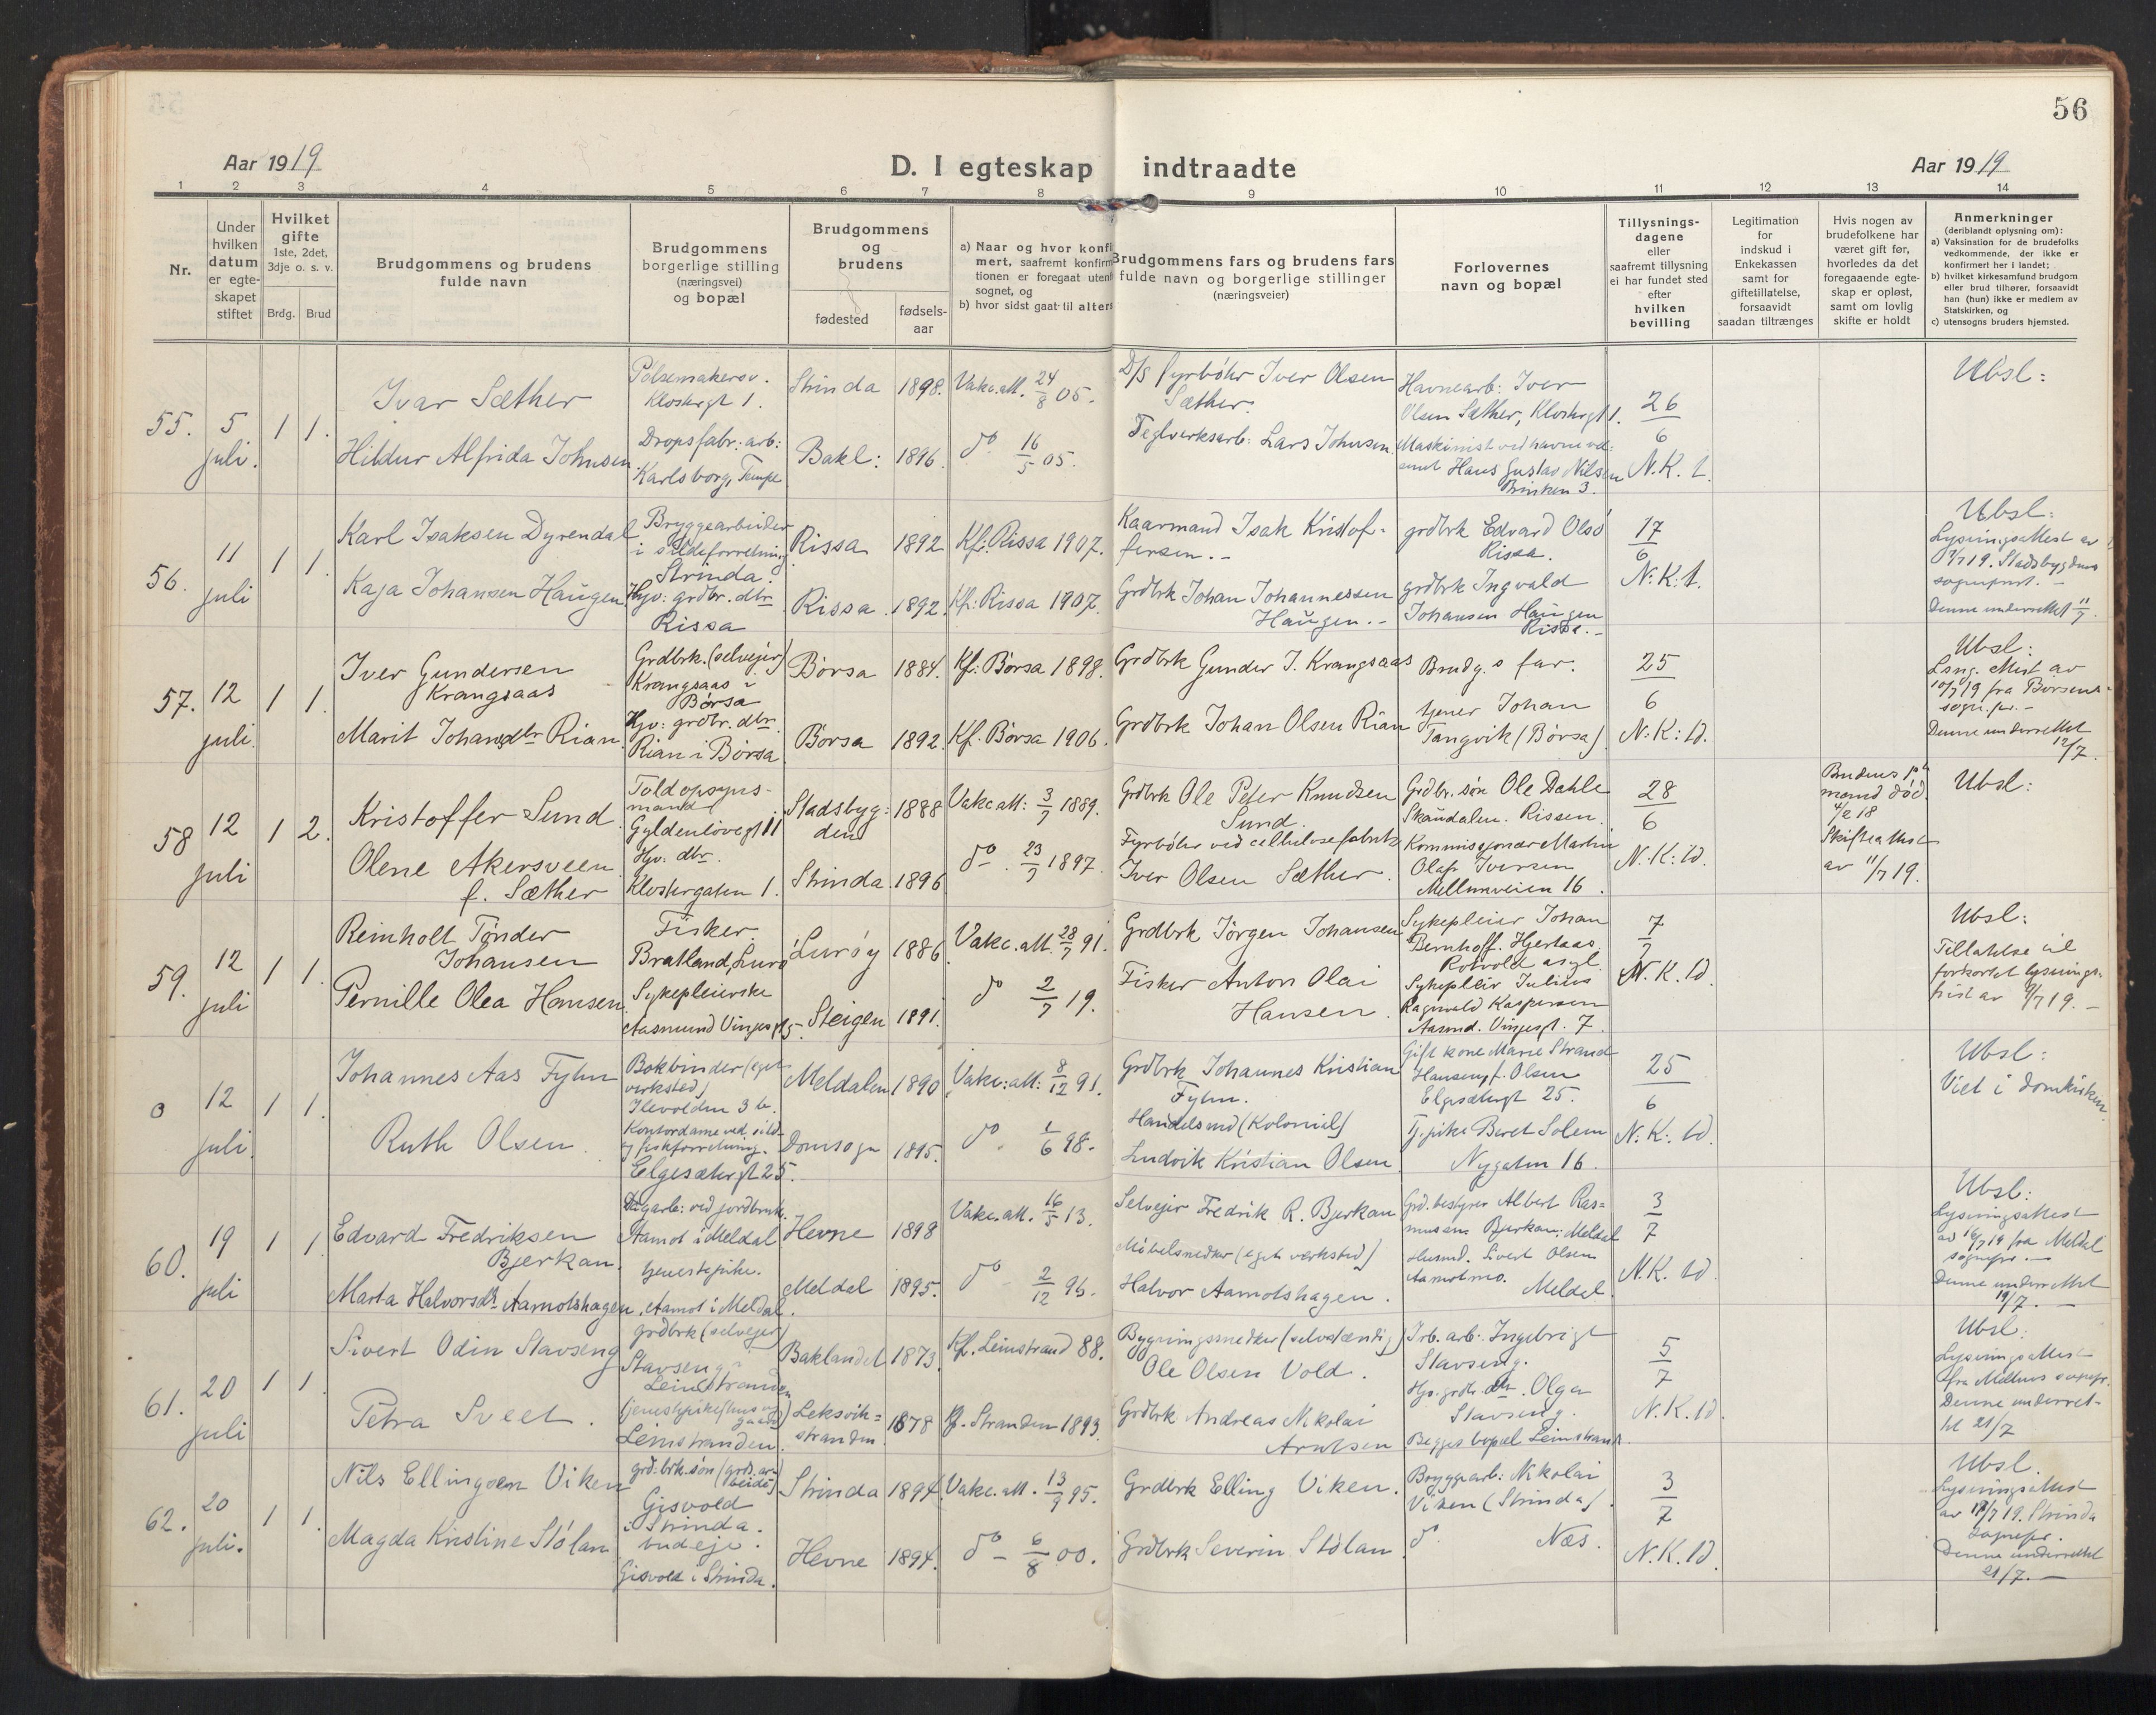 56
Aar 1919
D. I egteskap indtraadte
Aar 1919
1 2 3 4 5 6 7 8 9 10 11 12 13 14
Nr.
Under hvilken datum er egte-skapet stiftet
Hvilket gifte 1ste, 2det, 3dje o. s. v.
Brdg. Brud
Brudgommens og brudens fulde navn
Brudgommens borgerlige stilling (næringsvei) og bopæl
Brudgommens og brudens
fødested
fødsels-aar
a) Naar og hvor konfi mert, saafremt konfirm tionen er foregaat uten sognet, og
b) hvor sidst gaat til alters
Brudgommens fars og brudens fars fulde navn og borgerlige stillinger (næringsveier)
Forlovernes navn og bopæl
Tillysnings-dagene eller saafremt tillysning ei har fundet sted efter hvilken bevilling
Legitimation for indskud i Enkekassen samt for giftetillatelse, forsaavidt saadan tiltrænges
Hvis nogen av brudefolkene har været gift før, hvorledes da det foregaaende egte-skap er opløst, samt om lovlig skifte er holdt
Anmerkninger (deriblandt oplysning om):
a) Vaksination for de brudefolks vedkommende, der ikke er konfirmert her i landet;
b) hvilket kirkesamfund brudgom eller brud tilhører, forsaavidt han (hun) ikke er medlem av Statskirken, og
c) utensogns bruders hjemsted.
55. 5 juli. 1 1.
Ivar Sæther
Pølsemakersv. Klostergt 1.
Strinda 1898. Vakc.att. 24/8 05.
D/S fyrbøter Iver Olsen Sæther.
Havnearb: Iver Olsen Sæther, Klostergt 1.
26/6 N.K.t.
Ubsl:
Hildur Alfrida Johnsen.
Dropsfabr: arb: Karlsborg, Tempe
Bakl: 1896. do 16/5 05.
Teglverksarb: Lars Johnsen.
Maskinist ved havnevæsenet Hans Gustav Nilsen Brinken 3.
56. 11 juli 1 1.
Karl Isaksen Dyrendal
Bryggearbeider i sildeforretning Strinda.
Rissa 1892 Kf: Rissa 1907.
Kaarmand Isak Kristoffersen.-
grdbrk Edvard Olsø Rissa.
17/6 N:K:t.
Ubsl:
Lysningsattest av 7/7 19. Stadsbygdens sogneprst.-
Denne underrettet 11/7.
Kaja Johansen Haugen
Hjv: grdbr. dtr Rissa
Rissa 1892. Kf: Rissa 1907.
Grdbrk Johan Johannessen Haugen.-
grdbrk Ingvald Johansen Haugen Rissa.-
57. 12 juli. 1 1.
Iver Gundersen Krangsaas
Grdbrk. (selveier) Krangsaas i Børsa
Børsa 1884. Kf: Børsa 1898.
Grdbrk Gunder J. Krangsaas
Brudg.s far.
25/6 N:K:td.
Ubsl:
Lsng. Attest av 10/7 19 fra Børsens sogn.pr.-
Denne underrettet 12/7.
Marit Johansdtr Rian.
Hjv: grdbr. dtr. Rian i Børsa
Børsa 1892. Kf. Børsa 1906.
Grdbrk Johan Olsen Rian
tjener Johan Tangvik (Børsa)
58 12 juli 1 2.
Kristoffer Sund
Toldopsyns-mand Gyldenløvesgt 11
Stadsbygden 1888 Vakc att: 3/7 1889.
Grdbrk Ole Peter Knudsen Sund.
Grdbr. søn Ole Dahle Skaudalen. Rissen.
28/6 N.K:td.
Brudens 1ste mand død 4/2 18 Skifteattest av 11/7 19.
Ubsl:
Olene Akersveen f. Sæther
Hjv. dtr. Klostergaten 1.
Strinda 1896 do. 23/7 1897.
Fyrbøter ved cellulosefabrik Iver Olsen Sæther.
Kommissjonær Martin Olaf Iversen Mellemveien 16.
59. 12 juli 1 1.
Reinholt Tønder Johansen
Fisker. Bratland, Lurø
Lurøy 1886 Vakc.att. 28/7 91.
Grdbrk Jørgen Johansen
Sykepleier Johan Bernhoff. Hjertaas. Rotvold asyl.
7/7 N.K.td.
Ubsl:
Tillatelse til forkortet lysnings-frist av 9/7 19.-
Pernille Olea Hansen
Sykepleierske Aasmund Vinjesgt 5.
Steigen 1891. do 2/7 19.
Fisker Anton Olai Hansen.
Sykepleir Julius Ragnvald Kaspersen Aasmd. Vinjesgt. 7.
0 12 juli. 1 1.
Johannes Aas Fylun
Bokbinder (eget verksted) Ilevolden 3 b.
Meldalen 1890 Vakc:att: 8/12 91.
Grdbrk Johannes Kristian Fylun.
Gift kone Marie Strand Hansen, f. Olsen Elgesætergt 25.
25/6 N:K:td.
Ubsl:
Viet i domkirken
Ruth Olsen.
Kontordame ved sild- og fiskforretning. Elgesætergt 25.
Domsogn 1895. do. 1/6 98.
Handelsmd (Kolonial) Ludvik Kristian Olsen.
Tj.pike Beret Solem Nygaten 16.
60. 19 juli 1 1
Edvard Fredriksen Bjerkan.
Dagarb: ved jordbruk. Aamot i Meldal
Hevne 1898 Vakc.att. 16/5 13.
Selveier Fredrik R. Bjerkan
Grd.bestyrer Albert Rasmussen Bjerkan, Meldal
3/7 N.K.td.
Ubsl:
Lysningsattest av 16/7 19 fra Meldal sognepr.-
Denne underrettet 19/7.-
Marta Halvorsdtr Aamotshagen,
tjenestepike. Aamot i Meldal.
Meldal 1895. do - 2/12 96.
Møbelsnedker (eget verksted) Halvor Aamotshagen.
Husmd. Sivert Olsen Aamotmo. Meldal.
61. 20 juli 1 1.
Sivert Odin Stavseng
grdbrk (selveier) Stavseng Leinstranden
Baklandet 1873. Kf. Leinstrand 88.
Bygningssnedker (selvstændig) Ole Olsen Vold.
Irb. arb: Ingebrigt Stavseng.
5/7 N.K.td.
Ubsl:
Lysningsattest fra Melhus sognepr. Denne underret-tet 21/7
Petra Sveet.
tjenestepike (hus og gaard) Leinstranden.
Leksvik-stranden 1878 Kf. Stranden 1893.
Grdbrk Andreas Nikolai Arntsen
Hjv. grdb. dtr. Olga Stavseng. Begges bopæl Leinstrand.
62. 20 juli. 1 1.
Nils Ellingsen Viken
grd.brk.søn (grd.arbeide) Gisvold i Strinda.
Strinda 1894. Vakc.att. 13/9 95.
Grdbrk Elling Viken.
Bryggearb: Nikolai Viken (Strinda).
3/7 N.K.td.
Ubsl.
Lysningsattest av 18/7 19. Strinda sognepr.
Denne underrettet 21/7.-
Magda Kristine Stølan
budeje. Gisvold i Strinda.
Hevne 1894. do - 6/8 00.
Grdbrk Severin Stølan.
do. Næs.